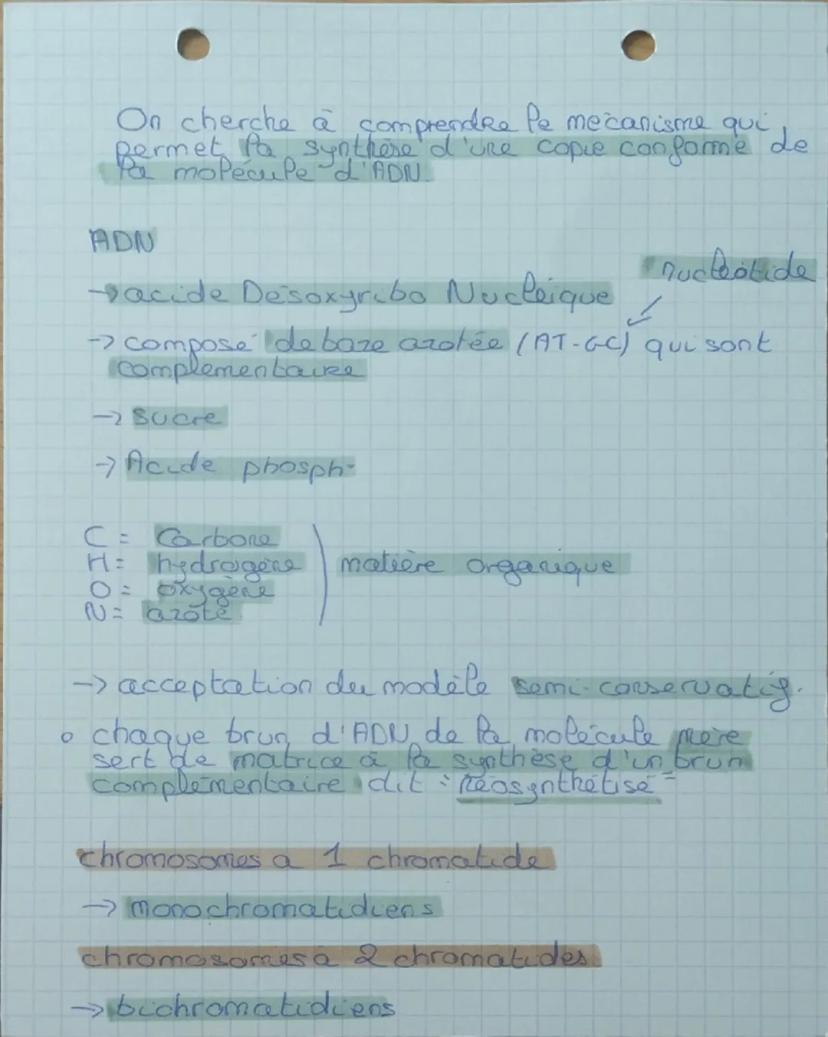 On cherche à comprendre le mécanisme qui
permet la synthèse d'une copie conforme de
la molécule d'ADN.
ADN
nucléotide
→ acide Désoxyribo Nucléique
→ composé de baze azotée (AT-GC) qui sont
complémentaire
→ sucre
→ Acide phosph-
C = Carbone
H = hydrogène
O = oxygène
N = azote
matière organique
→ acceptation du modèle semi-conservatif.
o chaque brun d'ADN de la molécule mère
sert de matrice à la synthèse d'un brun
complémentaire dit "néosynthétisé"
chromosomes a 1 chromatide
→ monochromatidiens
chromosomes à 2 chromatides
→ bichromatidiens